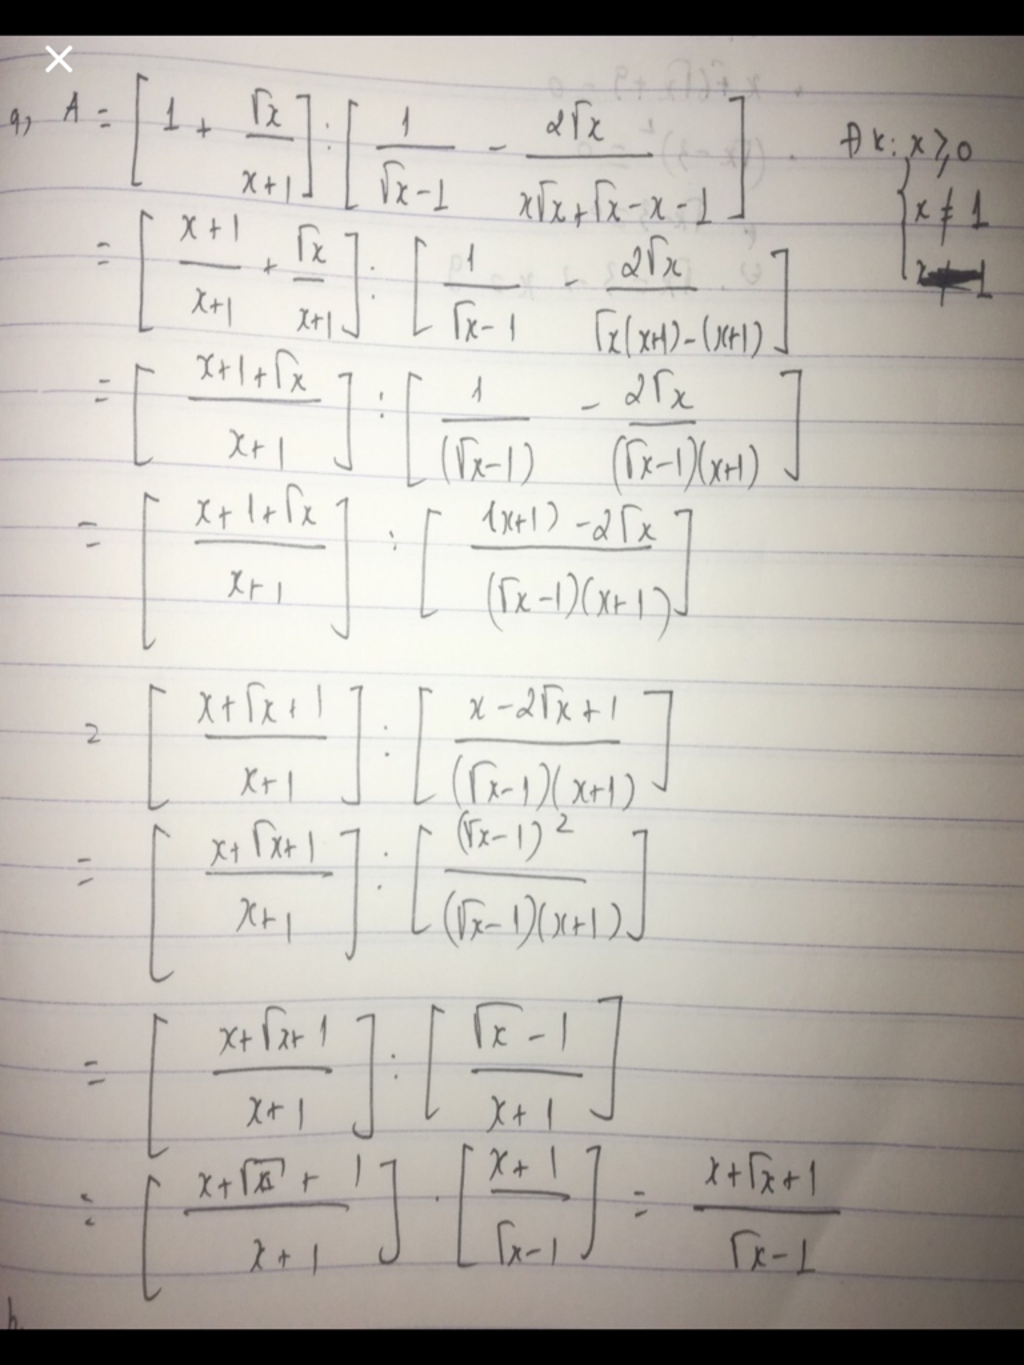 a, A = [1 + √x/(x+1)] : [1/(√x-1) - 2√x/(x√x+√x-x-1)] Đk: x ⩾ 0
x ≠ 1
= [(x+1)/(x+1) + √x/(x+1)] : [1/(√x-1) - 2√x/(√x(x+1)-(x+1))]
= [(x+1+√x)/(x+1)] : [1/(√x-1) - 2√x/((√x-1)(x+1))]
= [(x+1+√x)/(x+1)] : [(1(x+1) - 2√x)/((√x-1)(x+1))]
= [(x+√x+1)/(x+1)] : [(x-2√x+1)/((√x-1)(x+1))]
= [(x+√x+1)/(x+1)] : [(√x-1)²/((√x-1)(x+1))]
= [(x+√x+1)/(x+1)] : [(√x-1)/(x+1)]
= [(x+√x+1)/(x+1)] . [(x+1)/(√x-1)] = (x+√x+1)/(√x-1)